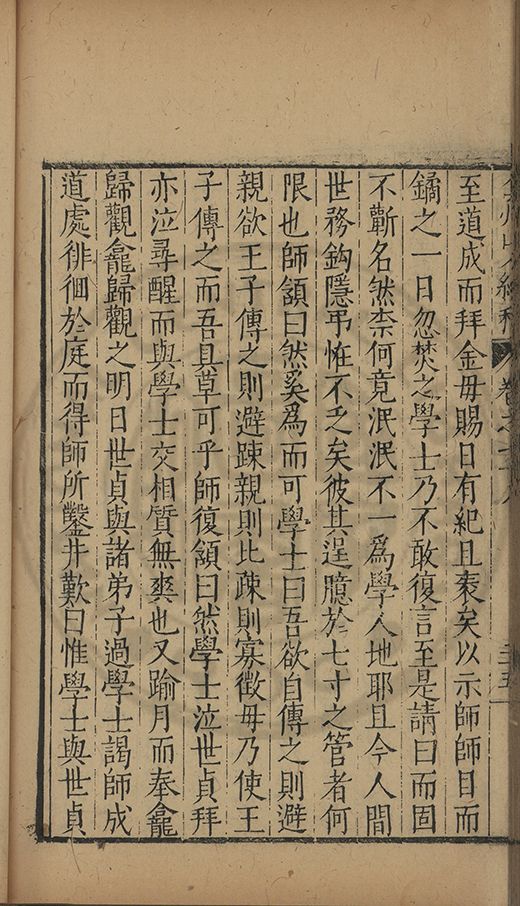 至道成而拜金母賜日有紀且袠矣以示師師目而
鐍之一日忽焚之學士乃不敢復言至是請曰而固
不蘄名然柰何竟泯泯不一爲學人地耶且今人間
世務鈎隱弔恠不乏矣彼其逞臆於七寸之管者何
限也師頷曰然奚爲而可學士曰吾欲自傳之則避
親欲王子傳之則避踈親則比疎則寡徵毋乃使王
子傳之而吾且草可乎師復頷曰然學士泣世貞拜
亦泣尋醒而與學士交相質無爽也又踰月而奉龕
歸觀龕歸觀之明日世貞與諸弟子過學士謁師成
道處徘徊於庭而得師所鑿井歎曰惟學士與世貞